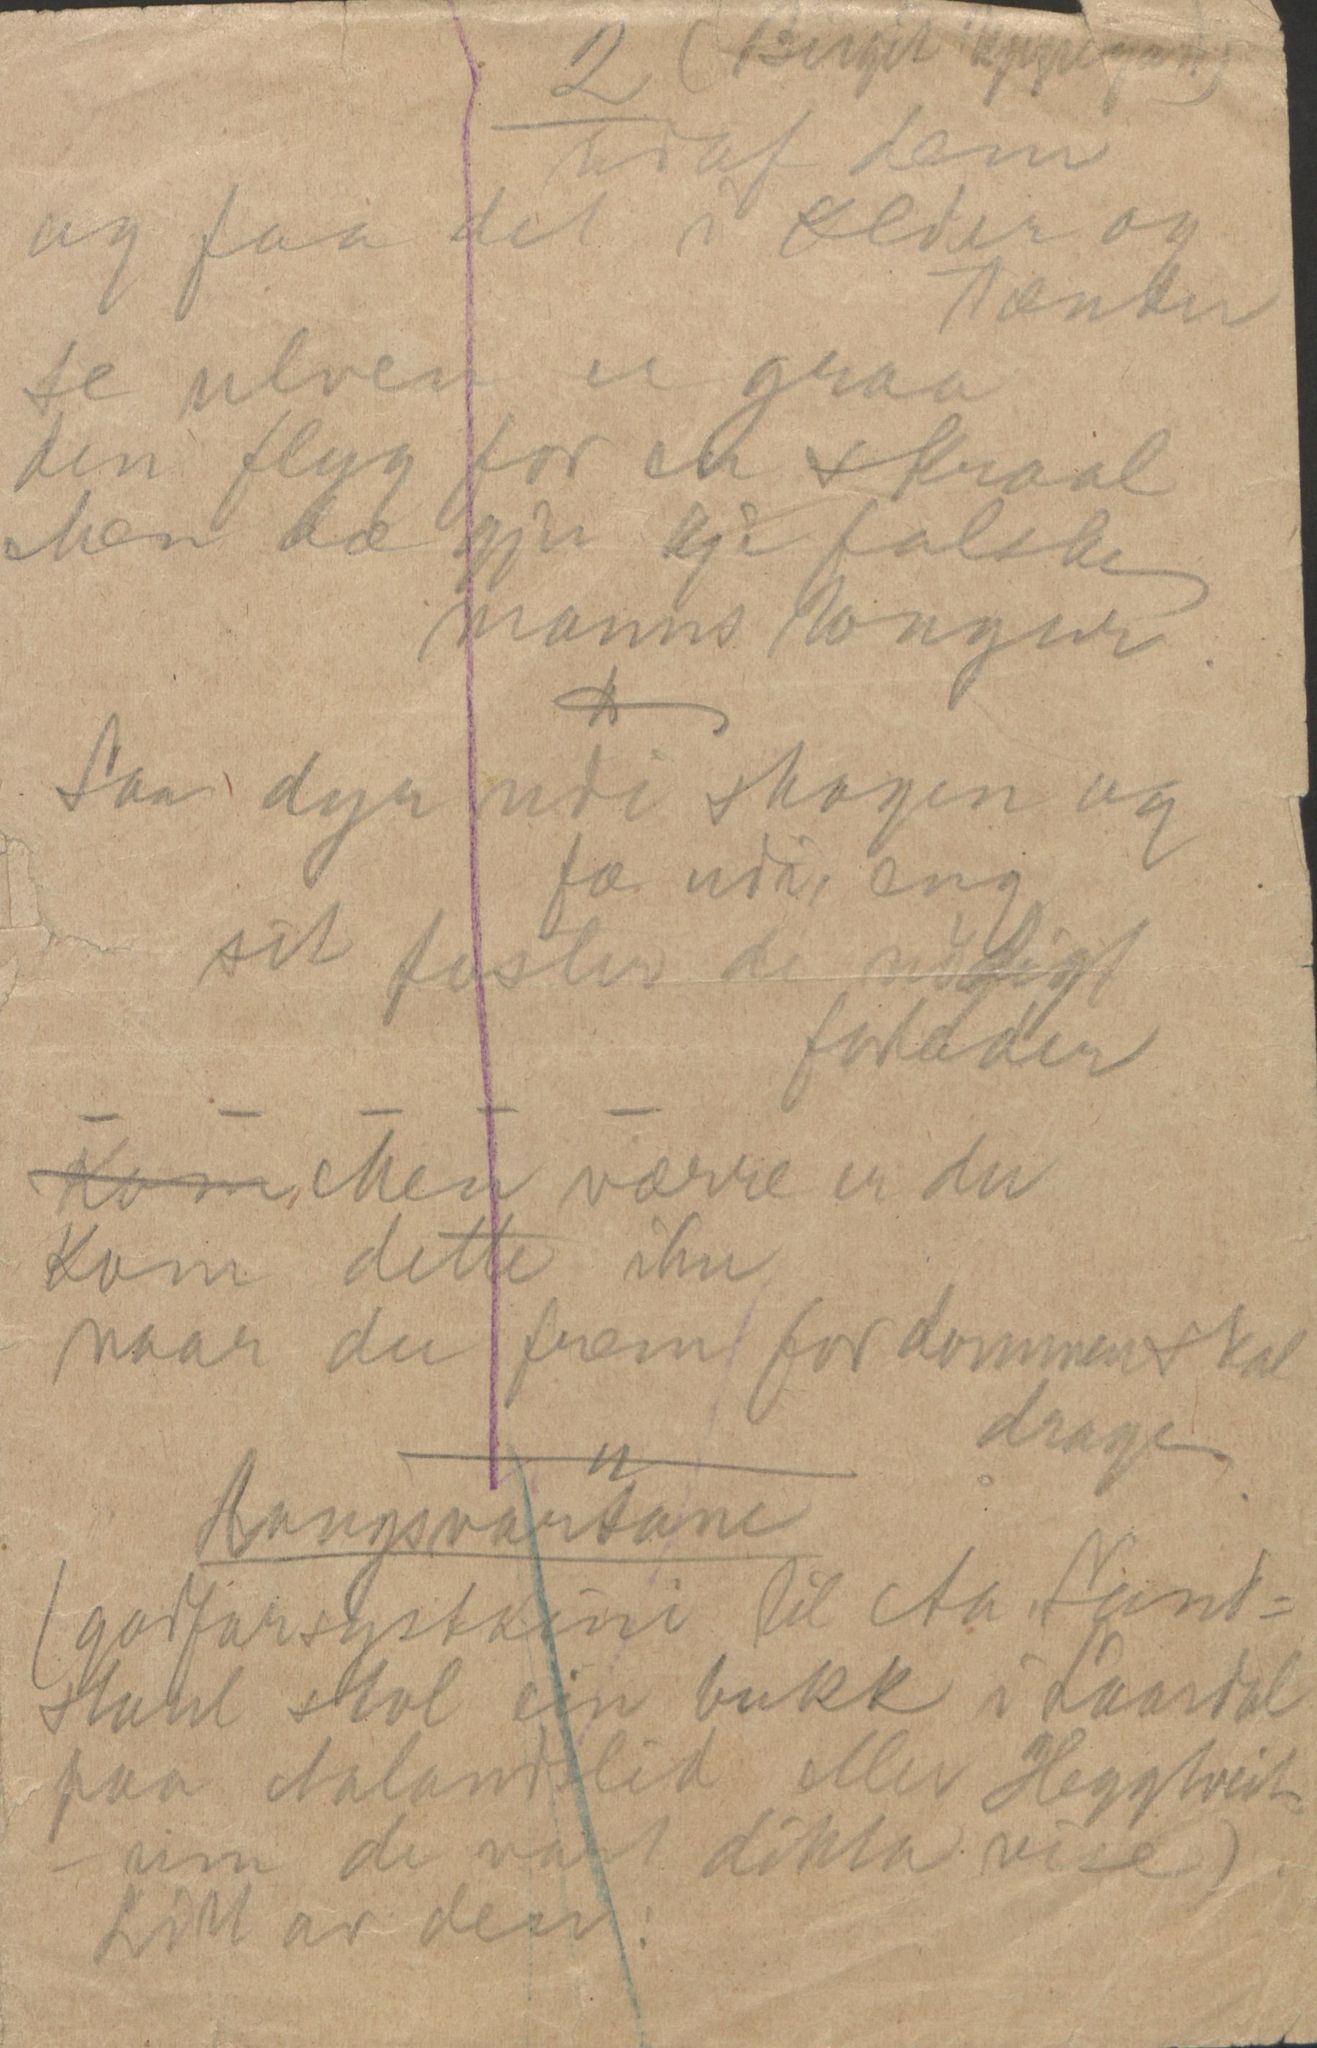 2 (Birgit
udaf dem
og faa det i Elder og
Tænder
se ulven er graa
den flyg for en skraal
Men dæ gjer kji falske
manns Tonger.
Saa dyr udi skogen og
fæ udi eng
sit foster de nødigt
forlader
— — — — —
Kom, Men værre er du
Kom dette ihu
naar du frem for dommen skal
drage
"
Rangsvartane
(godfarsystkini til Aa. Sund=
staul stol ein bukk i Laardal
paa Aalandslid eller Heggtveit
– um de vart dikta vise).
Litt av den: